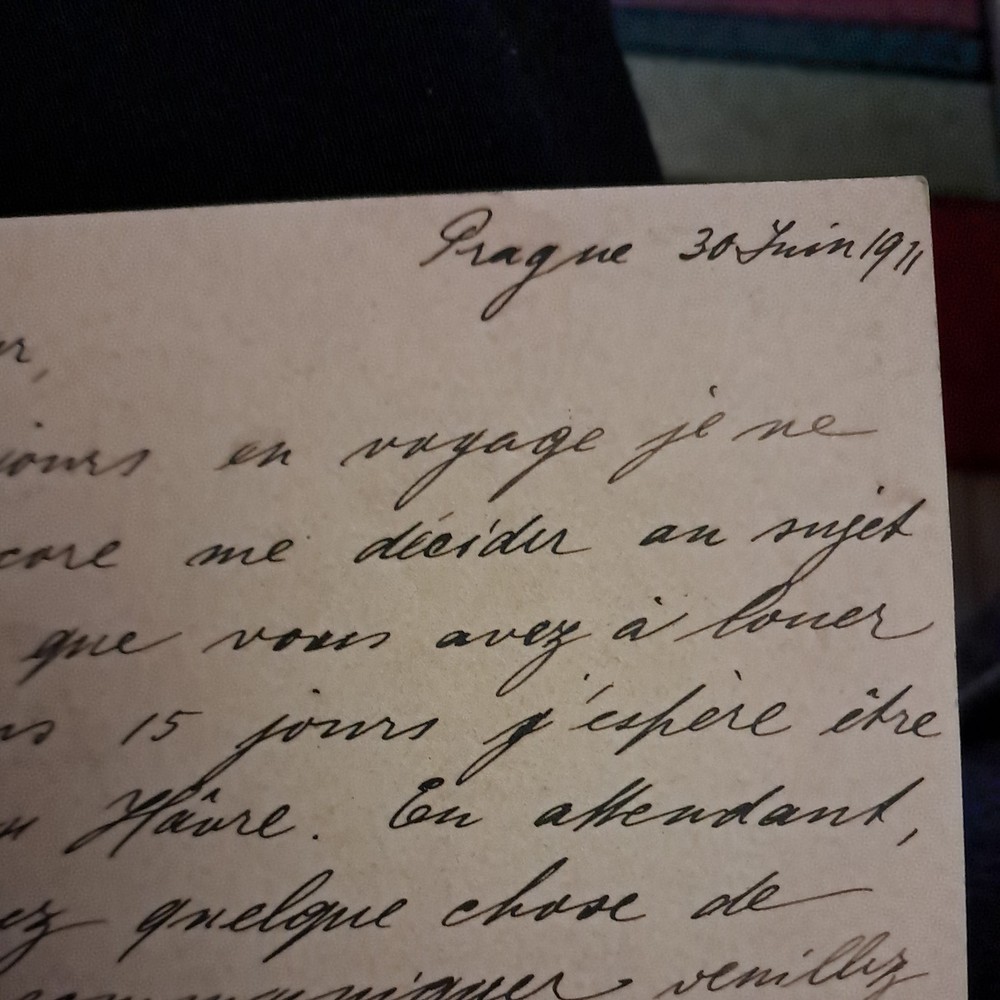 Prague 30 Juin 1911
ur,
jours en voyage je ne
core me décider au sujet
que vous avez à louer
ns 15 jours j'espère être
au Hâvre. En attendant,
ez quelque chose de
communiquer veuillez